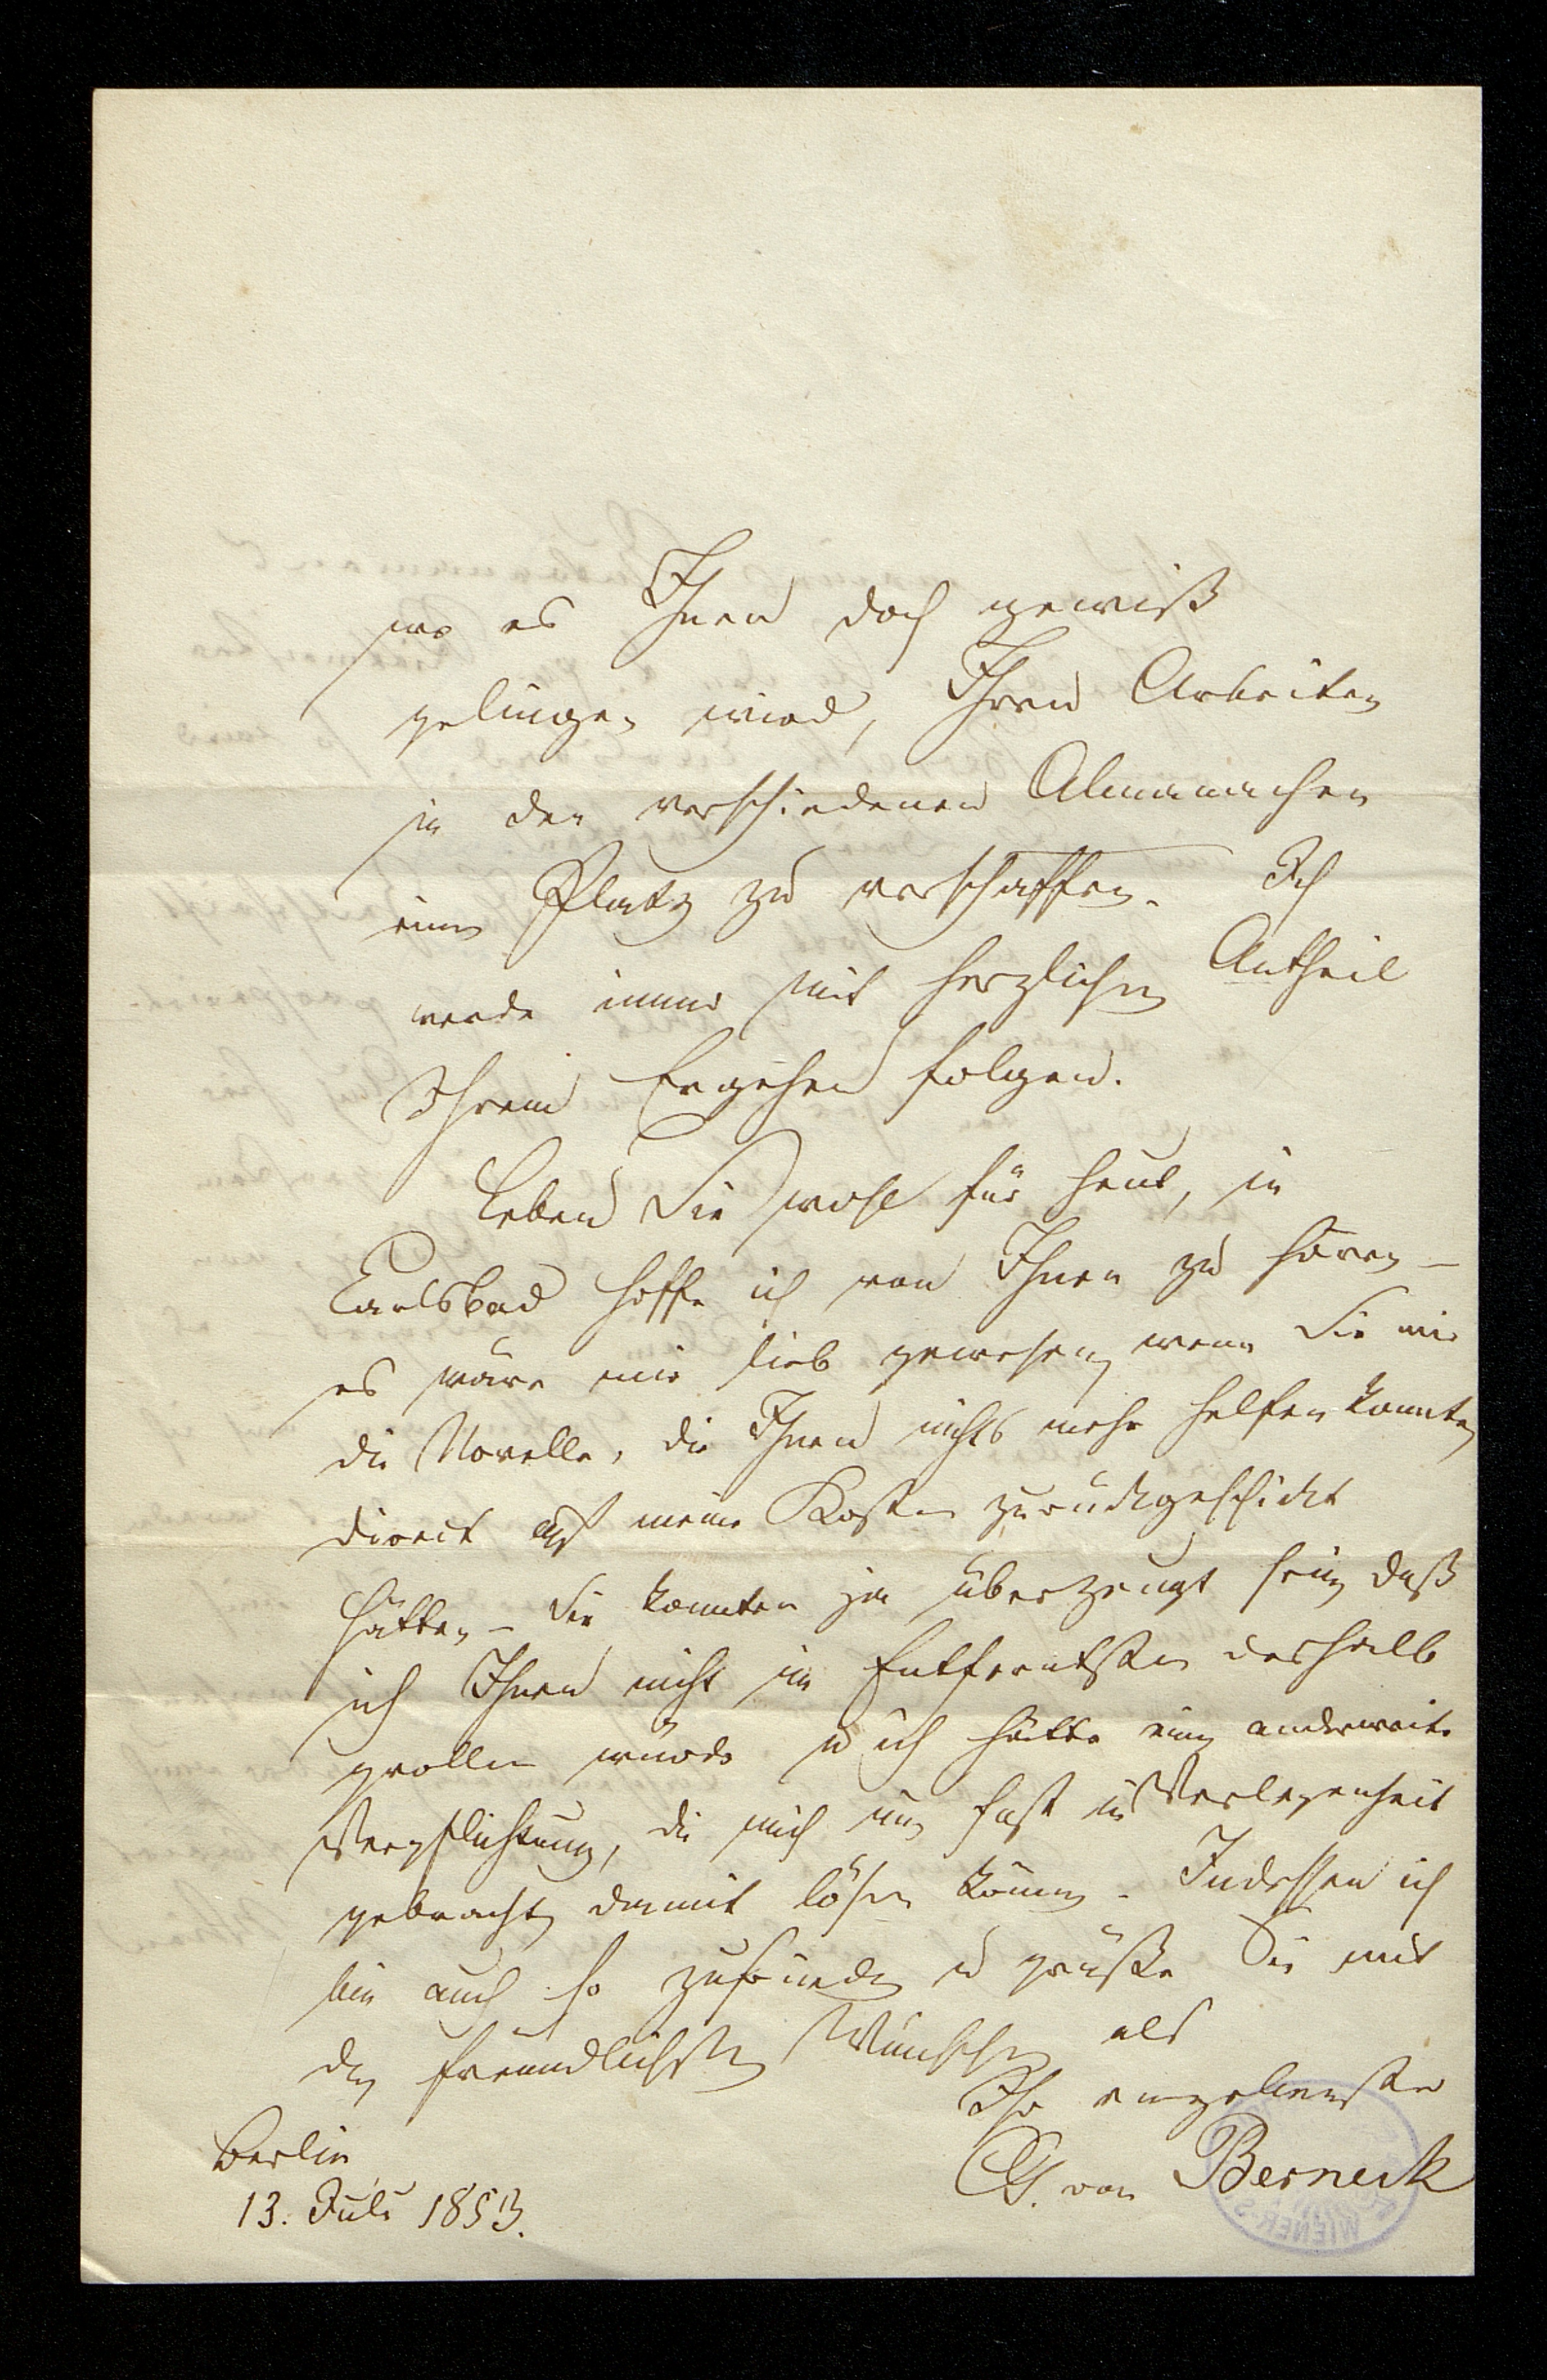 wo es Ihnen doch gewiß
gelingen wird, Ihren Arbeiten
in den verschiedenen Almanachen
einen Platz zu verschaffen. Ich
werde immer mit herzlichem Antheil
Ihrem Ergehen folgen.
Leben Sie wohl für heut, in
Carlsbad hoffe ich von Ihnen zu hören –
es wäre mir lieb gewesen, wenn Sie mir
die Novelle, die Ihnen nichts mehr helfen konnte,
direct auf meine Kosten zurückgeschickt
hätten – Sie konnten ja überzeugt sein, daß
ich Ihnen nicht im Entferntesten deshalb
grollen würde u ich hätte eine anderweite
Verpflichtung, die mich nun fast in Verlegenheit
gebracht, damit lösen können. Indessen ich
bin auch so zufrieden u grüße Sie mit
den freundlichsten Wünschen als
Ihr ergebenster
G. von Berneck
Berlin
13. Juli 1853.